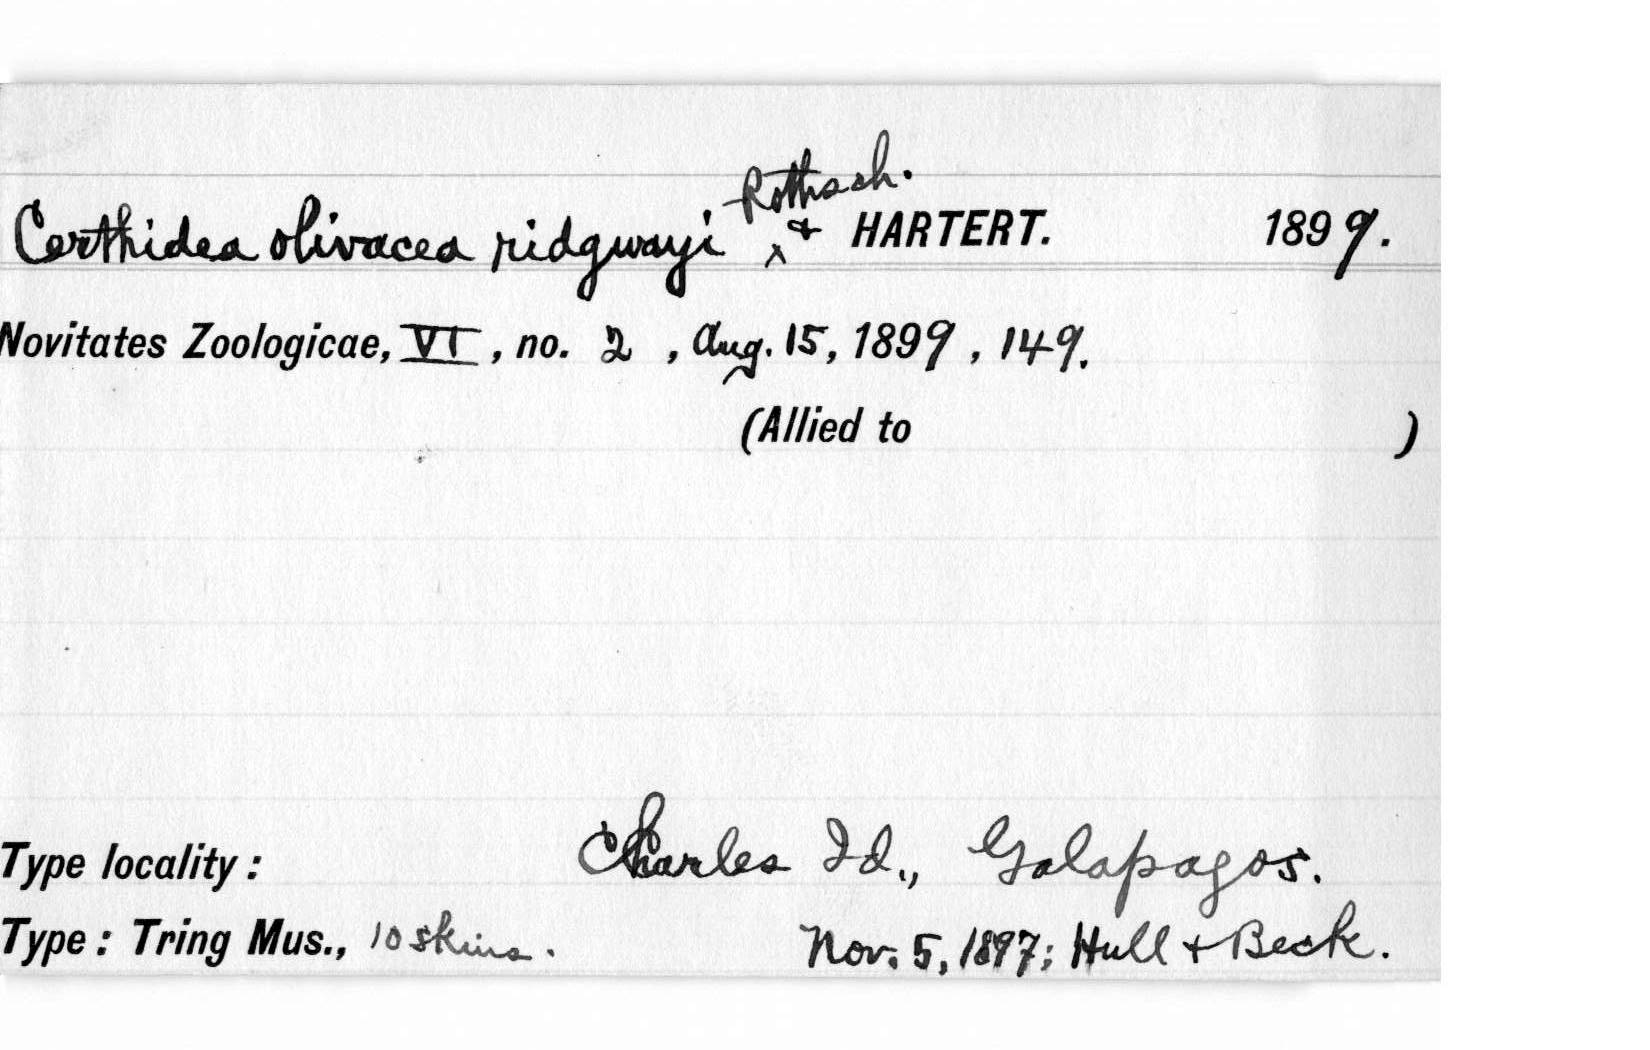 Certhidea olivacea ridgwayi ^ Rothsch. & HARTERT. 1899.
Novitates Zoologicae, VI, no. 2, Aug. 15, 1899, 149.
(Allied to )
Type locality: Charles Id., Galapagos.
Type: Tring Mus., 10 skins. Nov. 5, 1897; Hull + Beck.